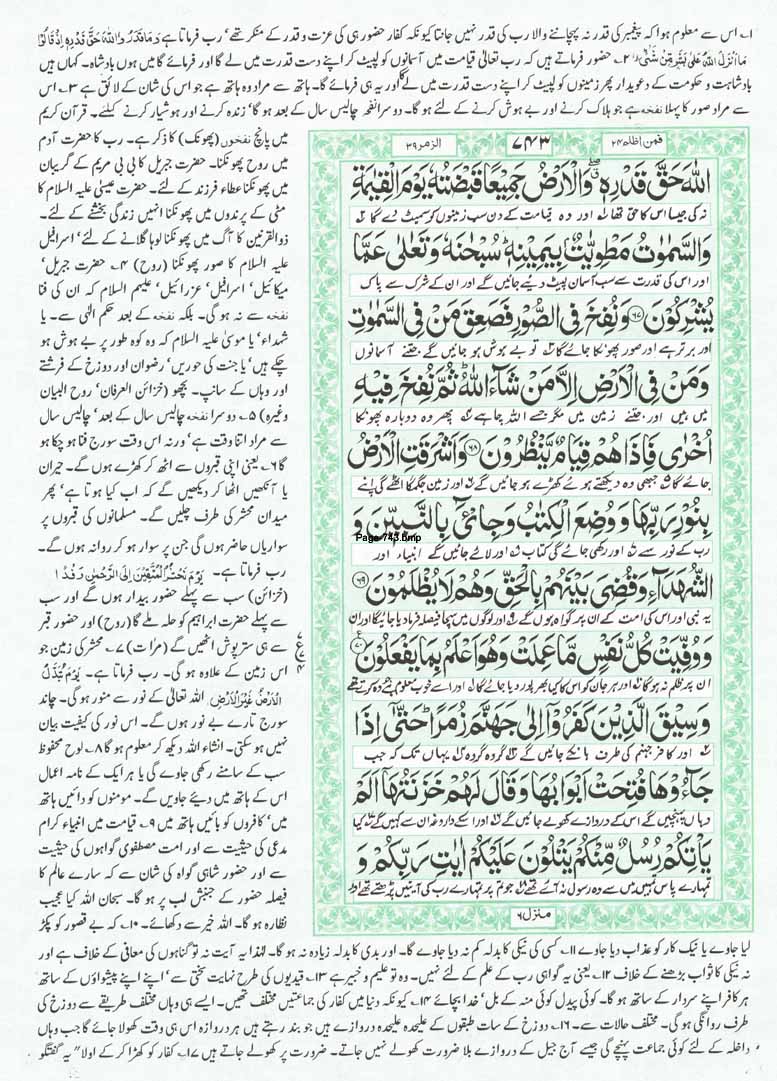 ۱۔ اس سے معلوم ہوا کہ پیغمبر کی قدر نہ پہچاننے والا رب کی قدر نہیں جانتا کیونکہ کفار حضور ہی کی عزت و قدر کے منکر تھے، رب فرماتا ہے وَمَاقَدَرُ وااللہَ حَقَّ قَدْرِہٖ اِذْ قَالُوْا
مَااَنْزَلَ اللہُ عَلٰی بَشَرٍمِّنْ شَئٍ ۲۔ حضور فرماتے ہیں کہ رب تعالٰی قیامت میں آسمانوں کو لپیٹ کر اپنے دست قدرت میں لے گا اور فرمائے گا میں ہوں بادشاہ۔ کہاں ہیں
بادشاہت و حکومت کے دعویدار پھر زمینوں کو لپیٹ کر اپنے دست قدرت میں لے کر یہ ہی فرمائے گا۔ ہاتھ سے مراد وہ ہاتھ ہے جو اس کی شان کے لائق ہے ۳۔ اس
سے مراد صور کا پہلا نفخہ ہے جو ہلاک کرنے اور بے ہوش کرنے کے لئے ہو گا۔ دوسرا نفخہ چالیس سال کے بعد ہو گا، زندہ کرنے اور ہوشیار کرنے کیلئے۔ قرآن کریم
میں پانچ نفخوں (پھونک) کا ذکر ہے۔ رب کا حضرت آدم
میں روح پھونکنا۔ حضرت جبریل کا بی بی مریم کے گریبان
میں پھونکنا عطاء فرزند کے لئے۔ حضرت عیسیٰ علیہ السلام کا
مٹی کے پرندوں میں پھونکنا انہیں زندگی بخشنے کے لئے۔
ذوالقرنین کا آگ میں پھونکنا لوہا گلانے کے لئے، اسرافیل
علیہ السلام کا صور پھونکنا (روح) ۴۔ حضرت جبریل،
میکائیل، اسرافیل، عزرائیل، علیہم السلام کہ ان کی فنا
نفخہ سے نہ ہو گی۔ بلکہ نفخہ کے بعد حکم الٰہی سے۔ یا
شہداء، یا موسیٰ علیہ السلام کہ وہ کوہ طور پر بے ہوش ہو
چکے ہیں، یا جنت کی حوریں، رضوان اور دوزخ کے فرشتے
اور وہاں کے سانپ۔ بچھو (خزائن العرفان، روح البیان
وغیرہ) ۵۔ دوسرا نفخہ چالیس سال کے بعد، چالیس سال
سے مراد اتنا وقت ہے، ورنہ اس وقت سورج فنا ہو چکا ہو
گا ۶۔ یعنی اپنی قبروں سے اٹھ کر کھڑے ہوں گے۔ حیران
یا آنکھیں اٹھا کر دیکھیں گے کہ اب کیا ہوتا ہے، پھر
میدان محشر کی طرف چلیں گے۔ مسلمانوں کی قبروں پر
سواریاں حاضر ہوں گی جن پر سوار ہو کر روانہ ہوں گے۔
رب فرماتا ہے۔ یَوْمَ نَحْشُرُ الْمُتَّقِیْنَ اِلَی الرَّحْمٰنِ وَفْدًا
(خزائن) سب سے پہلے حضور بیدار ہوں گے اور سب
سے پہلے حضرت ابراہیم کو حلہ ملے گا (روح) اور حضور قبر
سے ہی ستر پوش اٹھیں گے (مرات) ۷۔ محشر کی زمین جو
اس زمین کے علاوہ ہو گی۔ رب فرماتا ہے۔ یَوْمَ تُبَدَّلُ
الْاَرْضُ غَیْرَ الْاَرْضِ اللہ تعالٰی کے نور سے منور ہو گی۔ چاند
سورج تارے بے نور ہوں گے۔ اس نور کی کیفیت بیان
نہیں ہو سکتی۔ انشاء اللہ دیکھ کر معلوم ہو گا ۸۔ لوح محفوظ
سب کے سامنے رکھی جاوے گی یا ہر ایک کے نامہ اعمال
اس کے ہاتھ میں دیئے جاویں گے۔ مومنوں کو دائیں ہاتھ
میں، کافروں کو بائیں ہاتھ میں ۹۔ قیامت میں انبیاء کرام
مدعی کی حیثیت سے اور امت مصطفوی گواہوں کی حیثیت
سے اور حضور شاہی گواہ کی شان سے کہ سارے عالم کا
فیصلہ حضور کے جنبش لب پر ہو گا۔ سبحان اللہ کیا عجیب
نظارہ ہو گا۔ اللہ خیر سے دکھائے۔ ۱۰۔ کہ بے قصور کو پکڑ
فمن اظلم ۲۴ ۷۴۳ الزمر ۳۹
اللّٰهَ حَقَّ قَدْرِهٖ ۖۗ وَالْاَرْضُ جَمِيْعًا قَبْضَتُهٗ يَوْمَ الْقِيٰمَةِ
نہ کی جیسا اس کا حق تھا اور وہ قیامت کے دن سب زمینوں کو سمیٹ دے گا
وَالسَّمٰوٰتُ مَطْوِيّٰتٌۢ بِيَمِيْنِهٖ ؕ سُبْحٰنَهٗ وَتَعٰلٰى عَمَّا
اور اس کی قدرت سے سب آسمان لپیٹ دیئے جائیں گے اور ان کے شرک سے پاک
يُشْرِكُوْنَ ۶۷ وَنُفِخَ فِى الصُّوْرِ فَصَعِقَ مَنْ فِى السَّمٰوٰتِ
اور برتر ہے اور صور پھونکا جائے گا تو بے ہوش ہو جائیں گے جتنے آسمانوں
وَمَنْ فِى الْاَرْضِ اِلَّا مَنْ شَآءَ اللّٰهُ ؕ ثُمَّ نُفِخَ فِيْهِ
میں ہیں اور جتنے زمین میں مگر جسے اللہ چاہے پھر وہ دوبارہ پھونکا
اُخْرٰى فَاِذَا هُمْ قِيَامٌ يَّنْظُرُوْنَ ۶۸ وَاَشْرَقَتِ الْاَرْضُ
جائے گا جبھی وہ دیکھتے ہوئے کھڑے ہو جائیں گے اور زمین جگمگا اٹھے گی اپنے
بِنُوْرِ رَبِّهَا وَوُضِعَ الْكِتٰبُ وَجِایْٓءَ بِالنَّبِيّٖنَ وَ
Page 743.bmp
رب کے نور سے اور رکھی جائے گی کتاب اور لائے جائیں گے انبیاء اور
الشُّهَدَآءِ وَقُضِىَ بَيْنَهُمْ بِالْحَقِّ وَهُمْ لَا يُظْلَمُوْنَ ۶۹
یہ نبی اور اس کی امت کے ان پر گواہ ہوں گے اور لوگوں میں سچا فیصلہ فرما دیا جائیگا اور ان
وَوُفِّيَتْ كُلُّ نَفْسٍ مَّا عَمِلَتْ وَهُوَ اَعْلَمُ بِمَا يَفْعَلُوْنَ ۷۰
ان پر ظلم نہ ہو گا اور ہر جان کو اس کا کیا بھرپور دیا جائے گا اور اسے خوب معلوم ہے جو وہ کرتے تھے
وَسِيْقَ الَّذِيْنَ كَفَرُوْۤا اِلٰى جَهَنَّمَ زُمَرًا ؕ حَتّٰۤى اِذَا
اور کافر جہنم کی طرف ہانکے جائیں گے گروہ گروہ یہاں تک کہ جب
جَآءُوْهَا فُتِحَتْ اَبْوَابُهَا وَقَالَ لَهُمْ خَزَنَتُهَاۤ اَلَمْ
وہاں پہنچیں گے اس کے دروازے کھولے جائیں گے اور اسکے داروغہ ان سے کہیں گے کیا
يَاْتِكُمْ رُسُلٌ مِّنْكُمْ يَتْلُوْنَ عَلَيْكُمْ اٰيٰتِ رَبِّكُمْ وَ
تمہارے پاس تمہیں میں سے وہ رسول نہ آئے تھے جو تم پر تمہارے رب کی آیتیں پڑھتے تھے اور
منزل ۶
لیا جاوے یا نیک کار کو عذاب دیا جاوے ۱۱۔ کسی کی نیکی کا بدلہ کم نہ دیا جاوے گا۔ اور بدی کا بدلہ زیادہ نہ ہو گا۔ لہٰذا یہ آیت نہ تو گناہوں کی معافی کے خلاف ہے اور
نہ نیکی کا ثواب بڑھنے کے خلاف ۱۲۔ یعنی یہ گواہی رب کے علم کے لئے نہیں۔ وہ تو علیم و خبیر ہے ۱۳۔ قیدیوں کی طرح نہایت سختی سے، اپنے اپنے پیشواؤں کے ساتھ
ہر کافر اپنے سردار کے ساتھ ہو گا۔ کوئی پیدل کوئی منہ کے بل، خدا بچائے ۱۴۔ کیونکہ دنیا میں کفار کی جماعتیں مختلف تھیں۔ ایسے ہی وہاں مختلف طریقے سے دوزخ کی
طرف روانگی ہو گی۔ مختلف حالات سے۔ ۱۶۔ دوزخ کے سات طبقوں کے علیحدہ علیحدہ دروازے ہیں جو بند رہتے ہیں ہر دروازہ اس ہی وقت کھولا جائے گا جب وہاں
داخلہ کے لئے کوئی جماعت پہنچے گی جیسے آج جیل کے دروازے بلا ضرورت کھولے نہیں جاتے۔ ضرورت پر کھولے جاتے ہیں ۱۷۔ کفار کو کھڑا کر کے اولا" یہ گفتگو